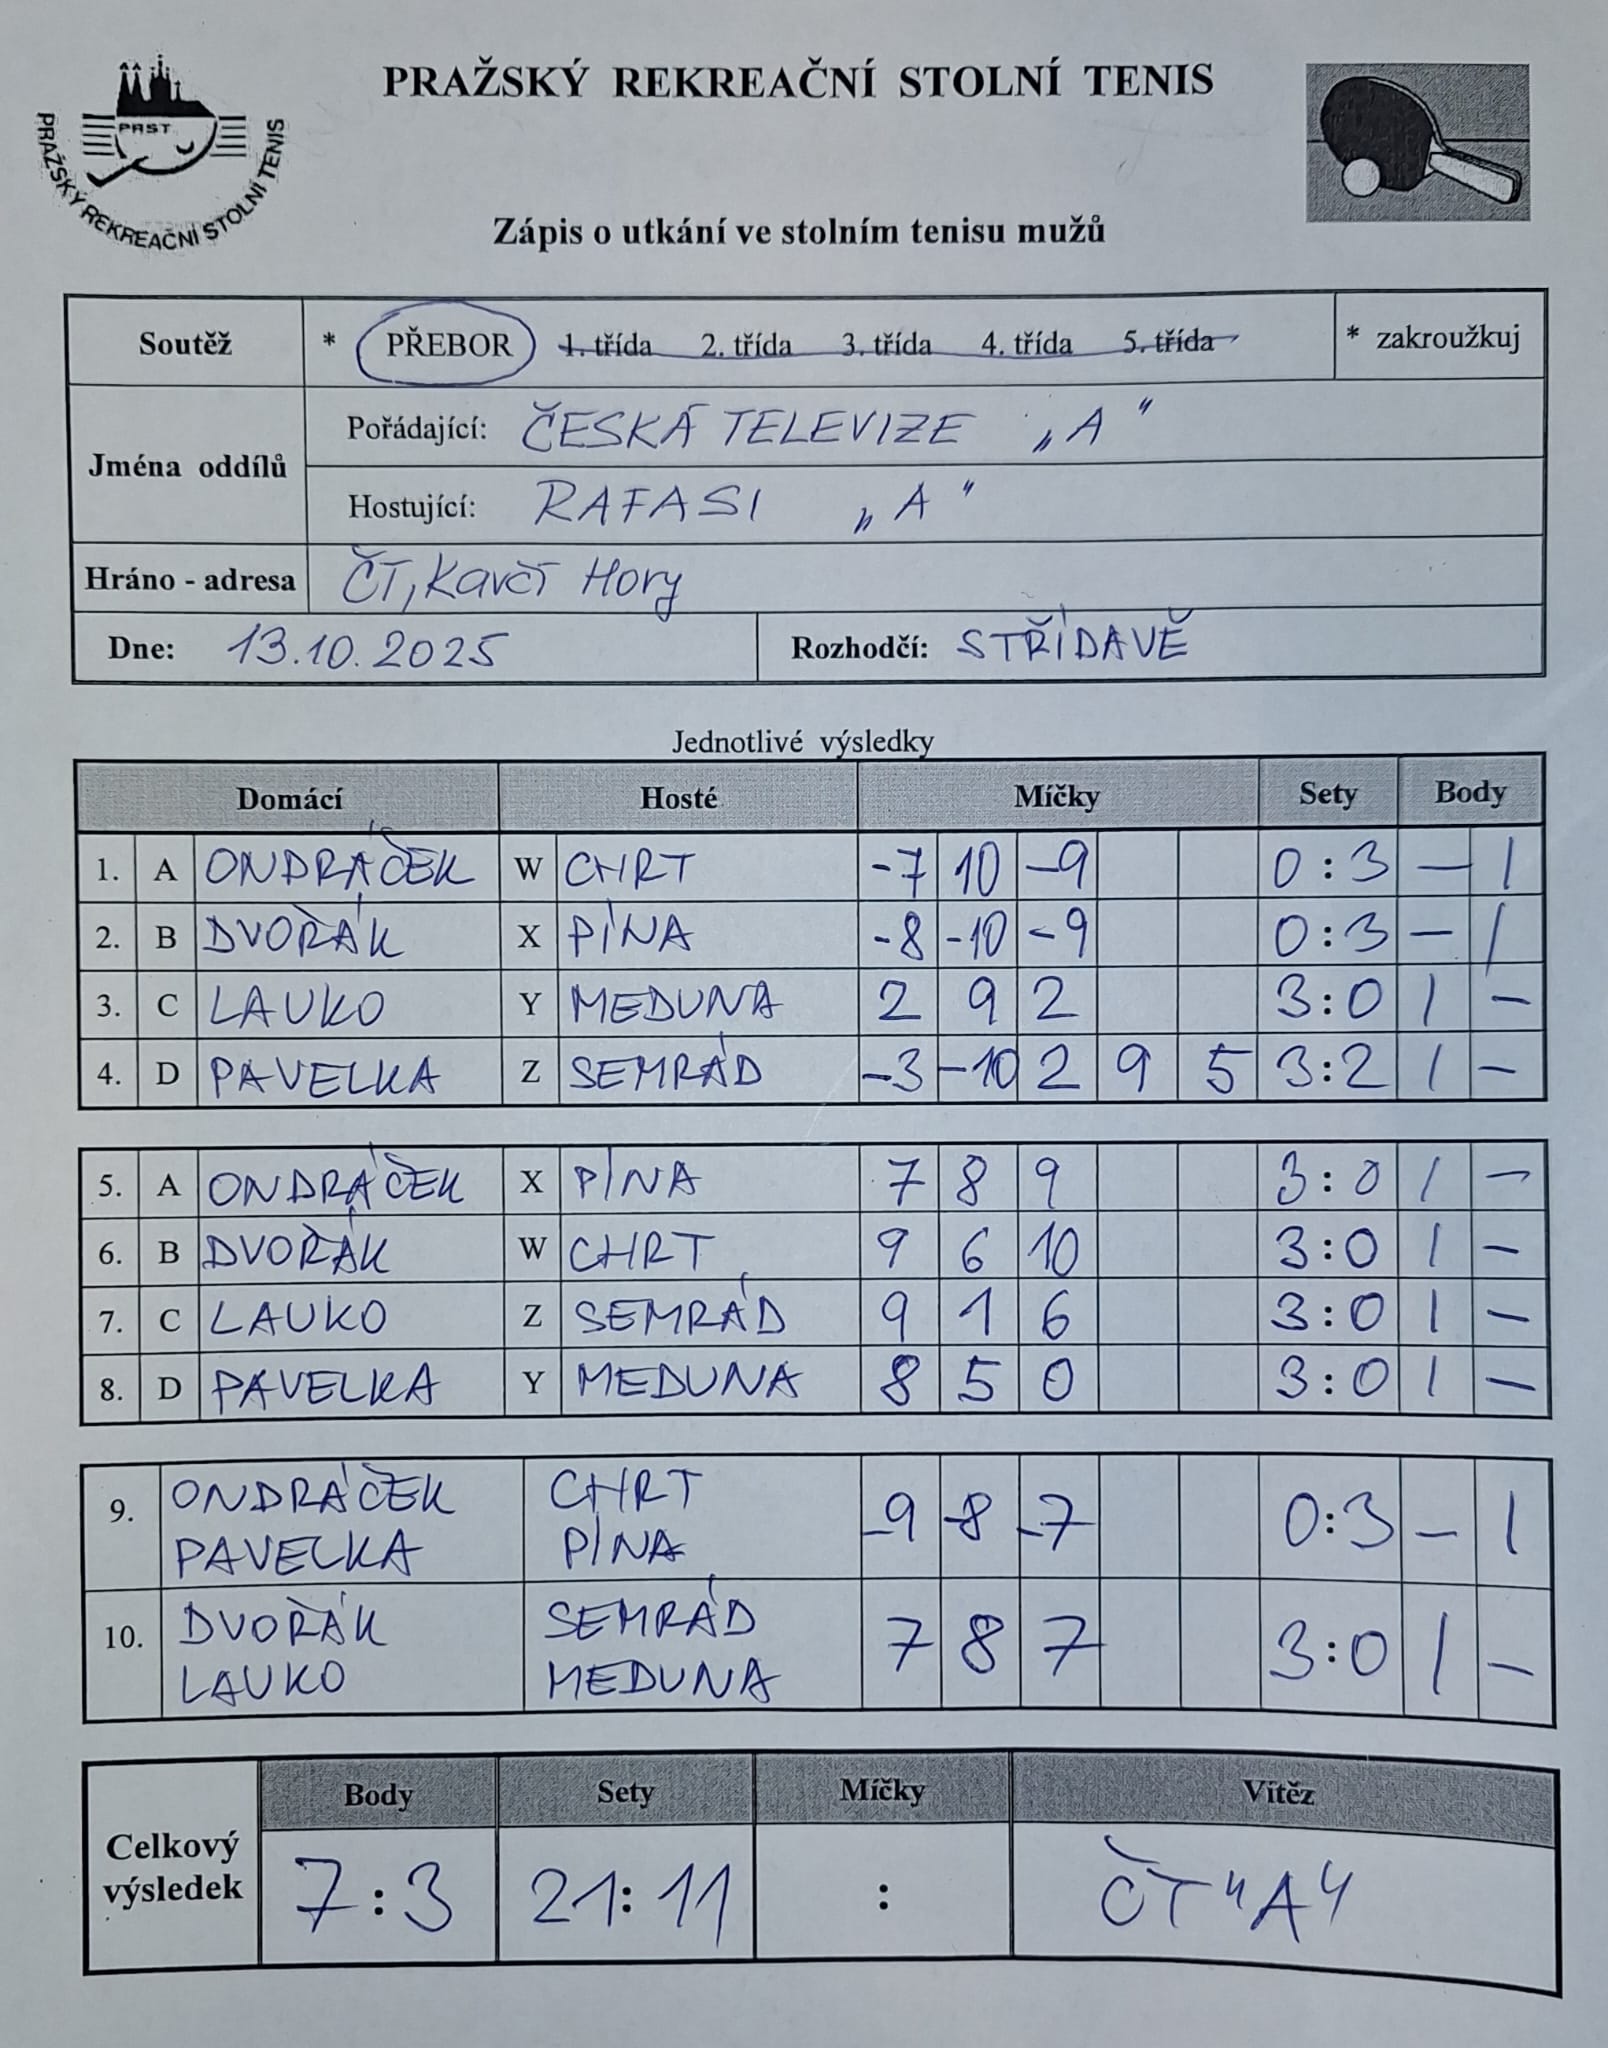 PRAŽSKÝ REKREAČNÍ STOLNÍ TENIS
PRST
PRAŽSKÝ REKREAČNÍ STOLNÍ TENIS
Zápis o utkání ve stolním tenisu mužů
Soutěž * PŘEBOR 1. třída 2. třída 3. třída 4. třída 5. třída * zakroužkuj
Jména oddílů
Pořádající: ČESKÁ TELEVIZE „A“
Hostující: RAFASI „A“
Hráno - adresa ČT, Kavčí Hory
Dne: 13.10.2025 Rozhodčí: STŘÍDAVĚ
Jednotlivé výsledky
Domácí Hosté Míčky Sety Body
1. A ONDRÁČEK W CHRT -7 10 -9 0:3 – 1
2. B DVOŘÁK X PÍNA -8 -10 -9 0:3 – 1
3. C LAUKO Y MEDUNA 2 9 2 3:0 1 –
4. D PAVELKA Z SEMRÁD -3 -10 2 9 5 3:2 1 –
5. A ONDRÁČEK X PÍNA 7 8 9 3:0 1 –
6. B DVOŘÁK W CHRT 9 6 10 3:0 1 –
7. C LAUKO Z SEMRÁD 9 1 6 3:0 1 –
8. D PAVELKA Y MEDUNA 8 5 0 3:0 1 –
9. ONDRÁČEK CHRT -9 -8 -7 0:3 – 1
PAVELKA PÍNA
10. DVOŘÁK SEMRÁD 7 8 7 3:0 1 –
LAUKO MEDUNA
Celkový výsledek
Body Sety Míčky Vítěz
7:3 21:11 : ČT "A"